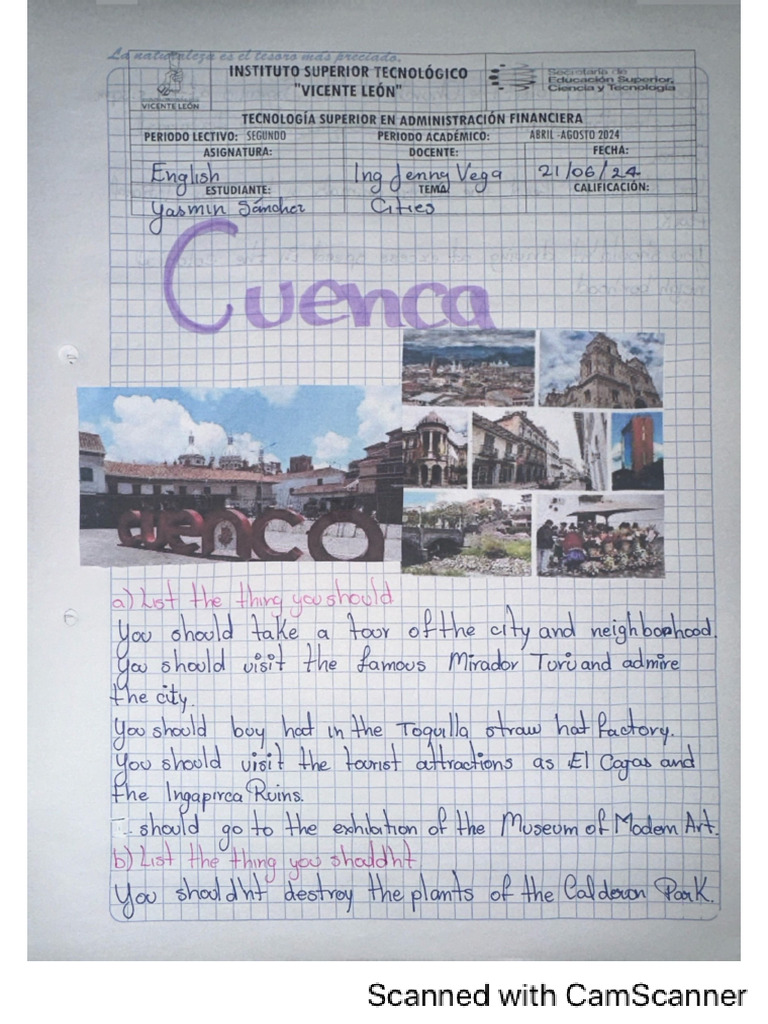 La naturaleza es el tesoro más preciado.
INSTITUTO SUPERIOR TECNOLÓGICO
"VICENTE LEÓN"
VICENTE LEÓN
Secretaría de
Educación Superior,
Ciencia y Tecnología
TECNOLOGÍA SUPERIOR EN ADMINISTRACIÓN FINANCIERA
PERIODO LECTIVO: SEGUNDO PERIODO ACADÉMICO: ABRIL -AGOSTO 2024
ASIGNATURA: DOCENTE: FECHA:
English Ing Jenny Vega 21/06/24
ESTUDIANTE: TEMA CALIFICACIÓN:
Yasmin Sánchez Cities
Cuenca
CUENCA
a) List the thing you should
You should take a tour of the city and neighborhood.
You should visit the famous Mirador Turi and admire
the city.
You should buy hat in the Toquilla straw hat factory.
You should visit the tourist attractions as El Cajas and
the Ingapirca Ruins.
should go to the exhibition of the Museum of Modern Art.
b) List the thing you shouldn't
You shouldn't destroy the plants of the Park.
Scanned with CamScanner